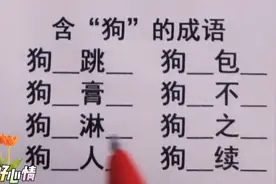 含“狗”的成语
狗__跳__ 狗__包__
狗__膏__ 狗__不__
狗__淋__ 狗__之__
狗__人__ 狗__续__
好心情